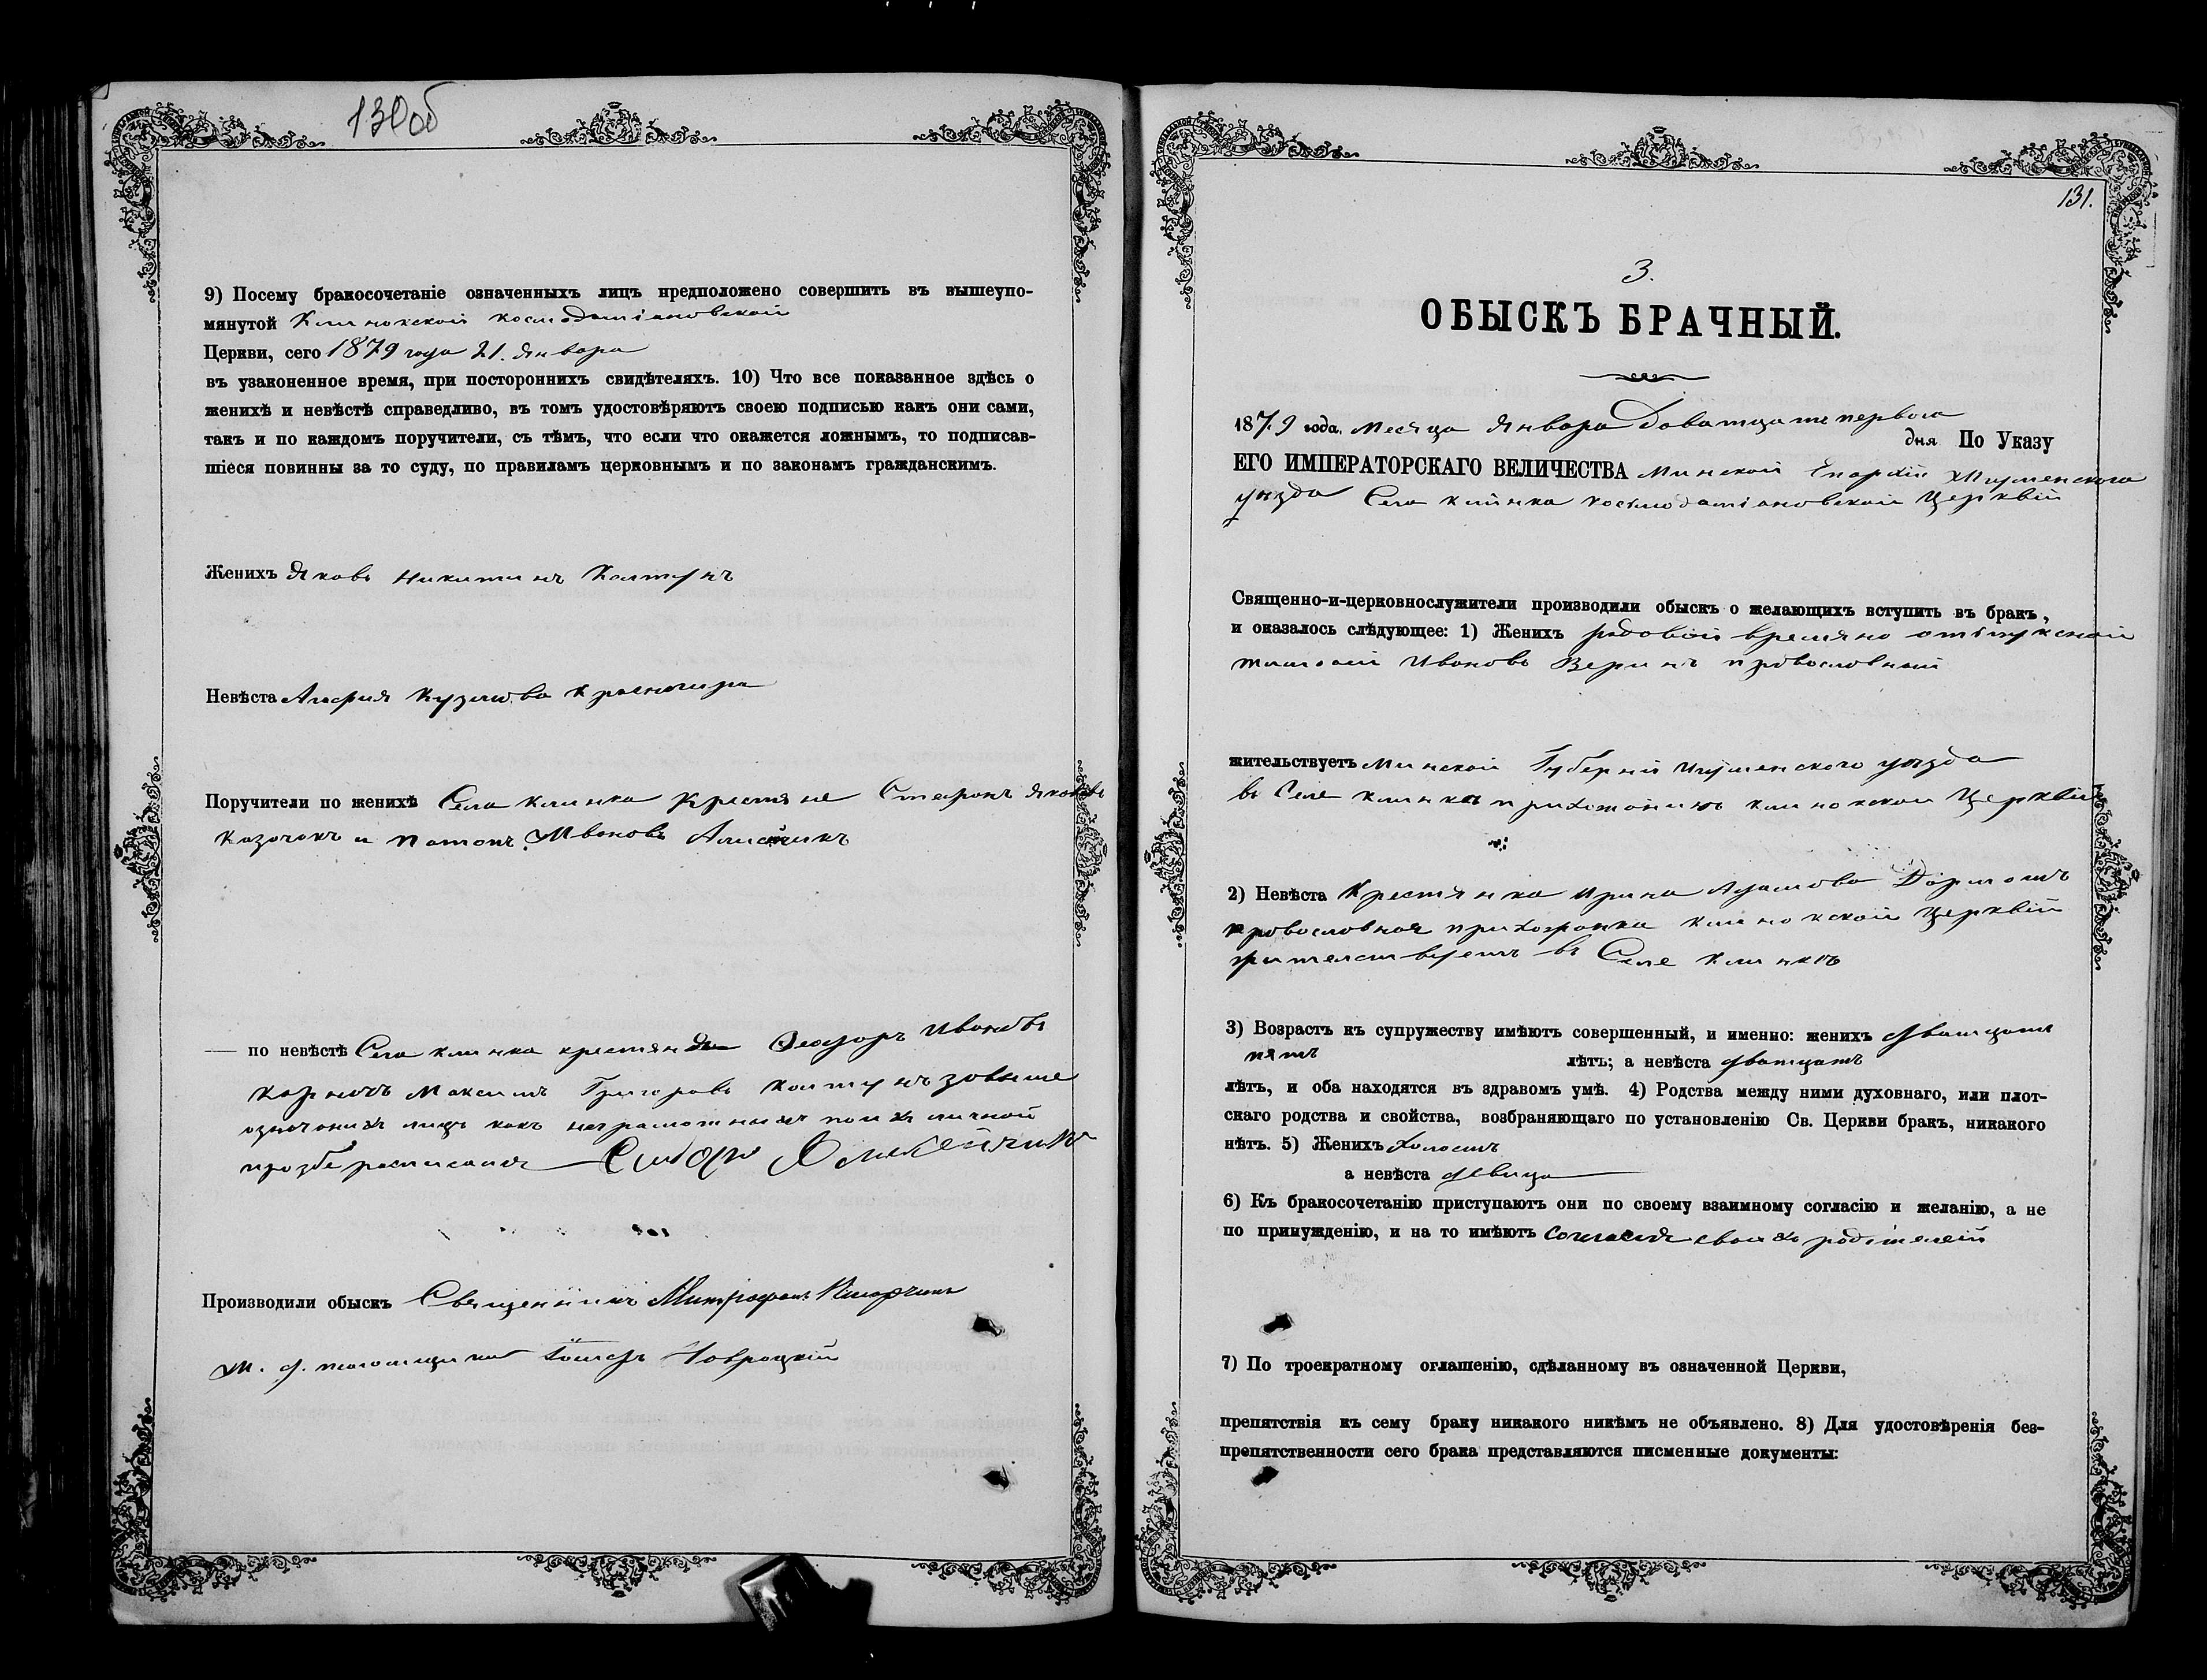 130об
9) Посему бракосочетаніе означенныхъ лицъ предположено совершить въ вышеупо-
мянутой Клинокской космодаміановской
Церкви, сего 1879 года 21. Января
въ узаконенное время, при постороннихъ свидѣтеляхъ. 10) Что все показанное здѣсь о
женихѣ и невѣстѣ справедливо, въ томъ удостовѣряютъ своею подписью какъ они сами,
такъ и по каждомъ поручители, съ тѣмъ, что если что окажется ложнымъ, то подписав-
шіеся повинны за то суду, по правиламъ церковнымъ и по законамъ гражданскимъ.
Женихъ Яковъ Никитинъ Колтунъ
Невѣста Агафия Кузмова
Поручители по женихѣ Села клинка крестяне Яковъ
Козачокъ и Ивоновъ
— по невѣстѣ Села клинка крестян Феодоръ Ивоновъ
Максимъ Григоровъ Колтунъ завыше
означоныхъ лицъ какъ неграмотныхъ по ихъ личной
прозбе росписался
Производили обыскъ Священникъ Митрофанъ
и. д. Новроцкій
131.
3.
ОБЫСКЪ БРАЧНЫЙ.
1879 года. Месяца Января Доватцать первого
дня По Указу
ЕГО ИМПЕРАТОРСКАГО ВЕЛИЧЕСТВА Минской Епархіи Игуменского
уезда Села клинка косьмодаміановской Церквій
Священно-и-церковнослужители производили обыскъ о желающихъ вступить въ бракъ,
и оказалось слѣдующее: 1) Женихъ рядовой времяно отпускной
Ивоновъ Веринъ провословный
жительствуетъ Минской Губерніи Игуменского уезда
въ Селе клинкъ прихожонинъ клинокской Церквій
2) Невѣста Крестянка Ирина Адамова
провословноя прихожонка клинокской церквій
жителствуетъ въ Селе клинкъ
3) Возрастъ къ супружеству имѣютъ совершенный, и именно: женихъ дваццать
пять лѣтъ; а невѣста дватцать
лѣтъ, и оба находятся въ здравомъ умѣ. 4) Родства между ними духовнаго, или плот-
скаго родства и свойства, возбраняющаго по установленію Св. Церкви бракъ, никакого
нѣтъ. 5) Женихъ холостъ
а невѣста девица
6) Къ бракосочетанію приступаютъ они по своему взаимному согласію и желанію, а не
по принужденію, и на то имѣютъ согласія своихъ родителей
7) По троекратному оглашенію, сдѣланному въ означенной Церкви,
препятствія къ сему браку никакого никѣмъ не объявлено. 8) Для удостовѣренія без-
препятственности сего брака представляются писменные документы: